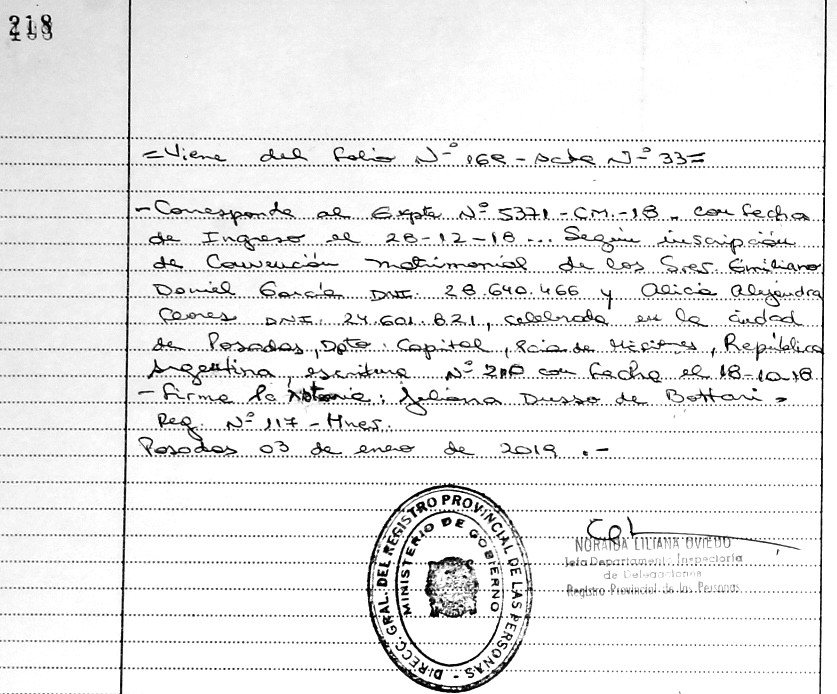 218
=Viene del folio Nº 168 - Acta Nº 33=
- Corresponde al Expte Nº 5371 - C.M. - 18 . con fecha
de Ingreso el 28-12-18... Según inscripción
de Convención Matrimonial de los Sres Emiliano
Daniel García DNI. 28.640.466 y Alicia Alejandra
DNI. 24.601.821, celebrada en la ciudad
de Posadas, Dpto. Capital, Pcia de Misiones, República
Argentina, escritura Nº 210 con fecha el 18-10-18
- Firma la Notaria: Juliana Dusso de Bottari =
Reg. Nº 117 - Mnes.
Posadas 03 de enero de 2019 . -
DIRECC. GRAL. DEL REGISTRO PROVINCIAL DE LAS PERSONAS -
MINISTERIO DE GOBIERNO
NORAIDA LILIANA OVIEDO
Jefa Departamento Inspectoría
de Delegaciones
Registro Provincial de las Personas